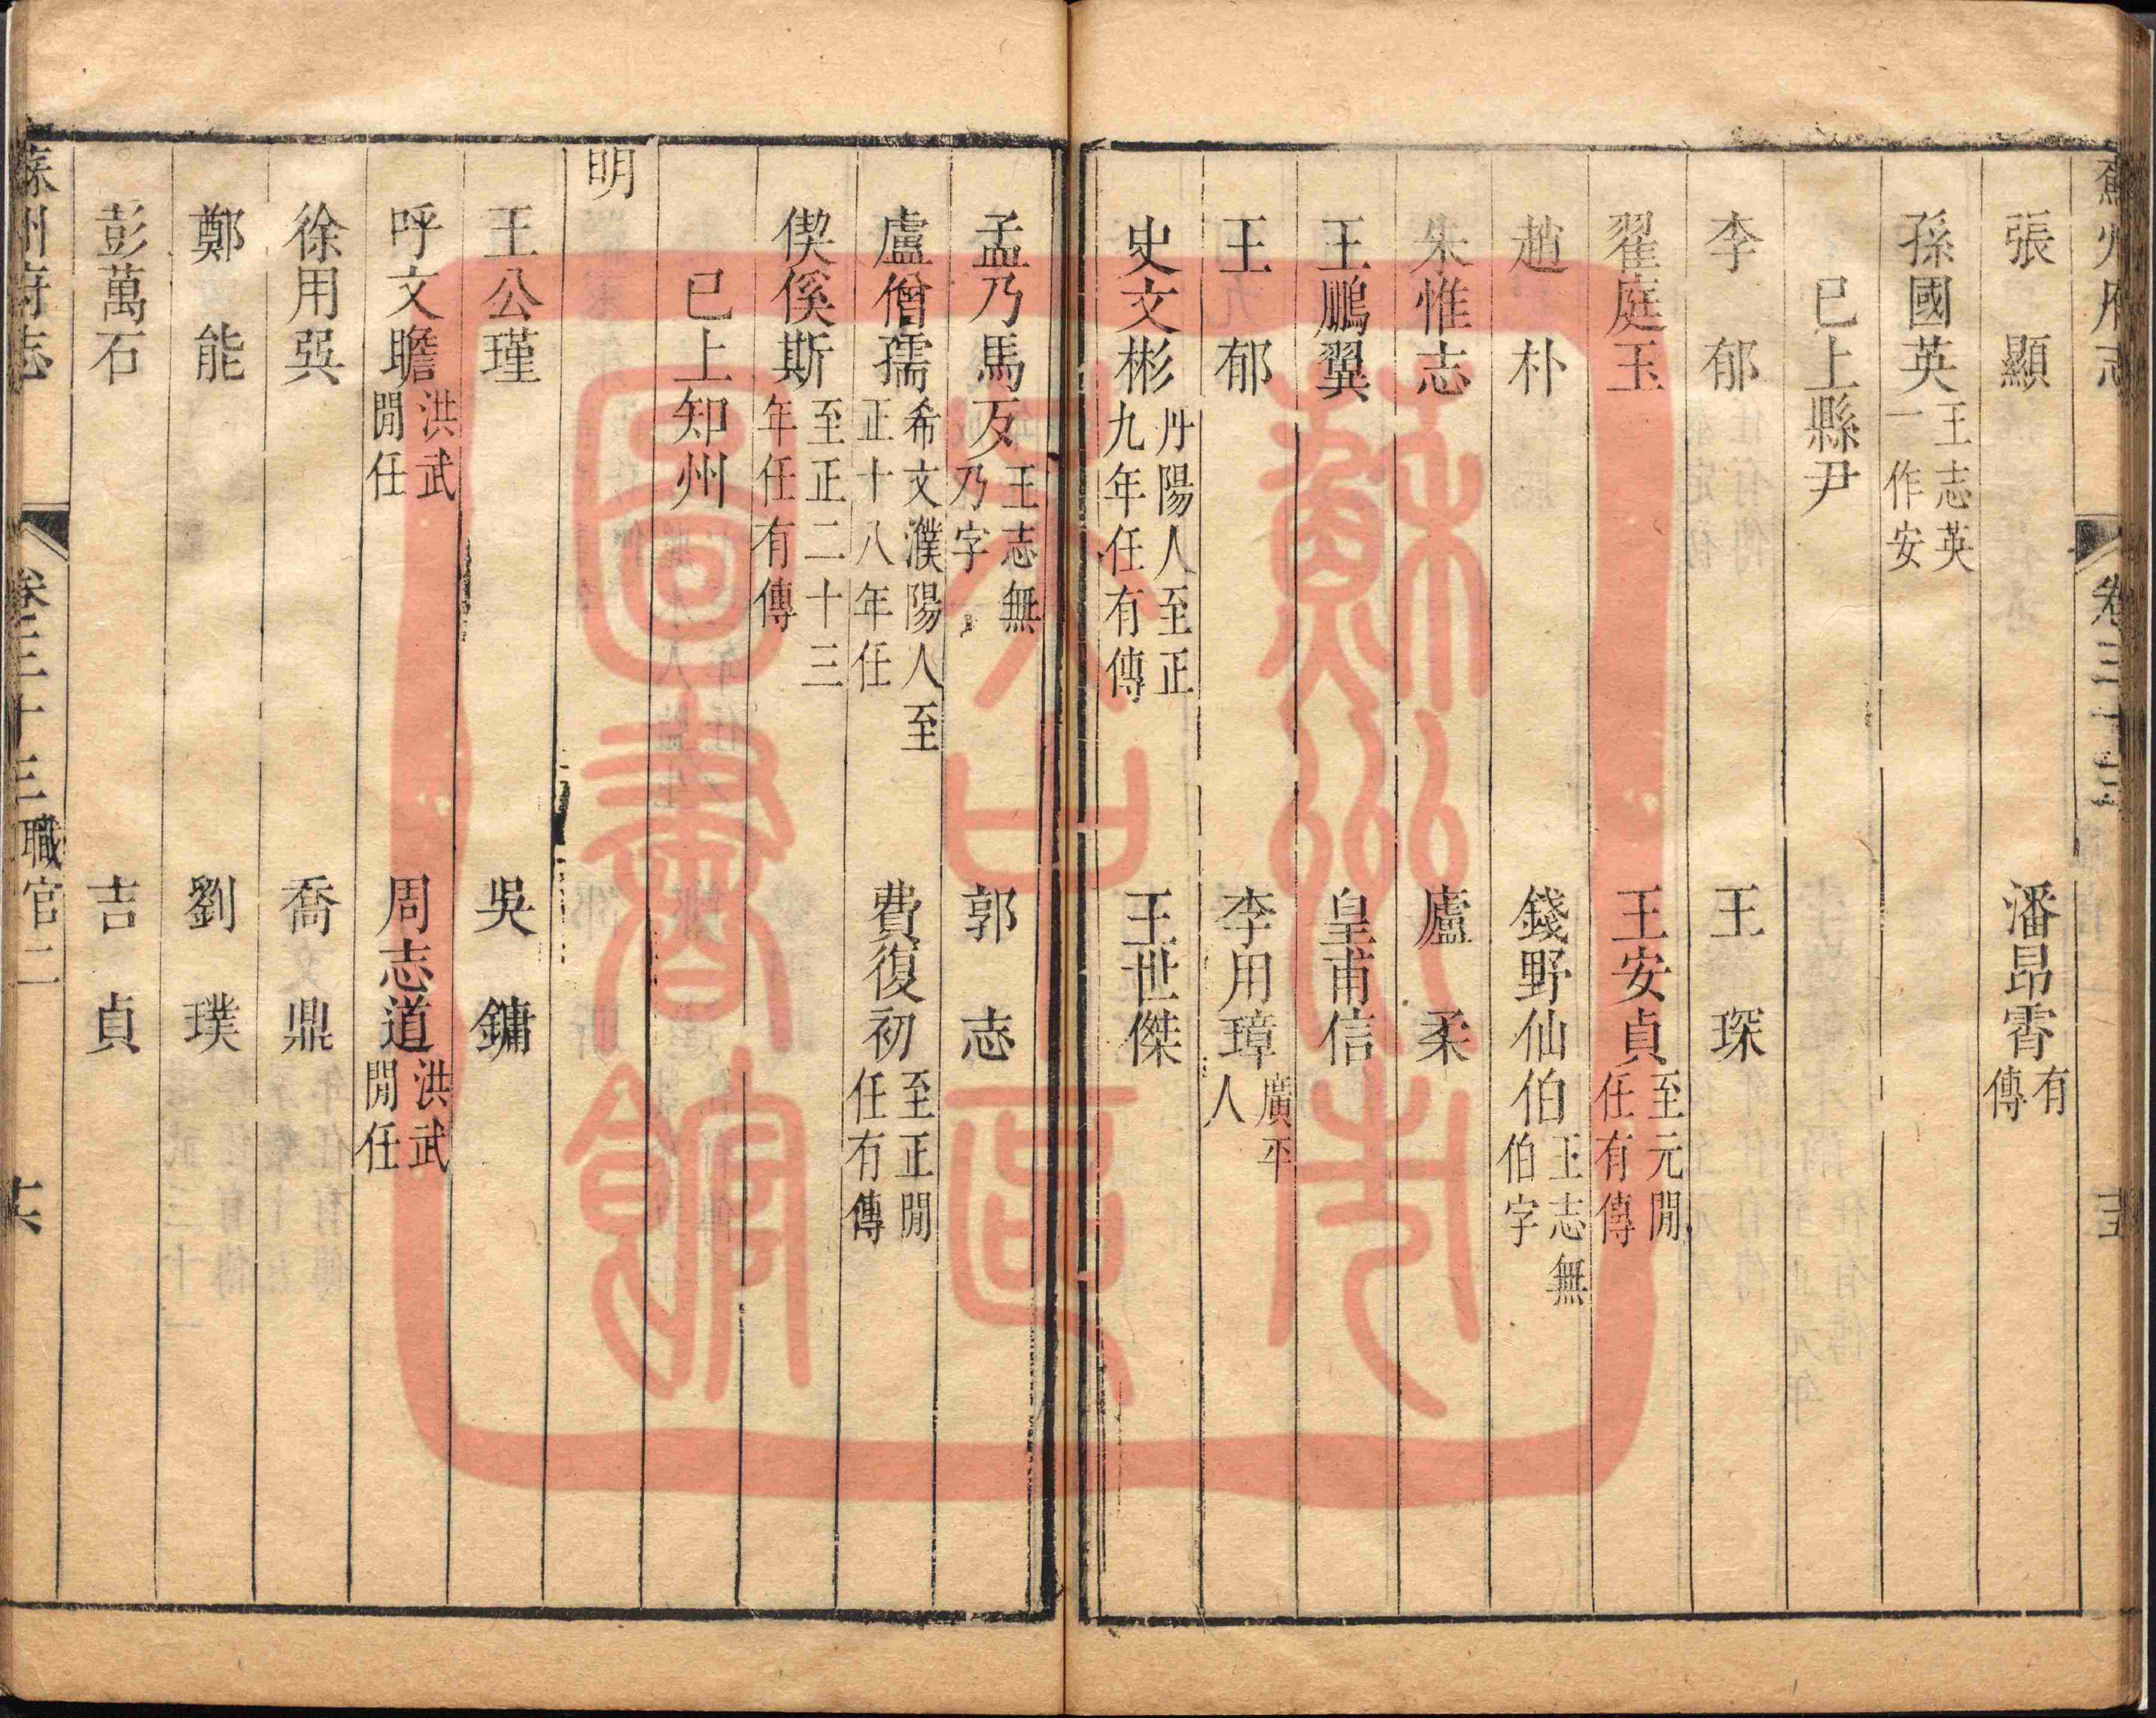 蘇州府志 卷三十三
張顯 潘昂霄有傳
孫國英王志英一作安
已上縣尹
李郁 王琛
翟庭玉 王安貞至元閒任有傳
趙朴 錢野仙伯王志無伯字
朱惟志 盧柔
王鵬翼 皇甫信
王郁 李用璋廣平人
史文彬丹陽人至正九年任有傳 王世傑
孟乃馬歹王志無乃字 郭志
盧僧孺希文濮陽人至正十八年任 費復初至正閒任有傳
偰傒斯至正二十三年任有傳
已上知州
明
王公瑾 吳鏞
呼文瞻洪武閒任 周志道洪武閒任
徐用㢲 喬鼎
鄭能 劉璞
彭萬石 吉貞
蘇州府志 卷三十三職官二 六
蘇州市古吳區圖書館